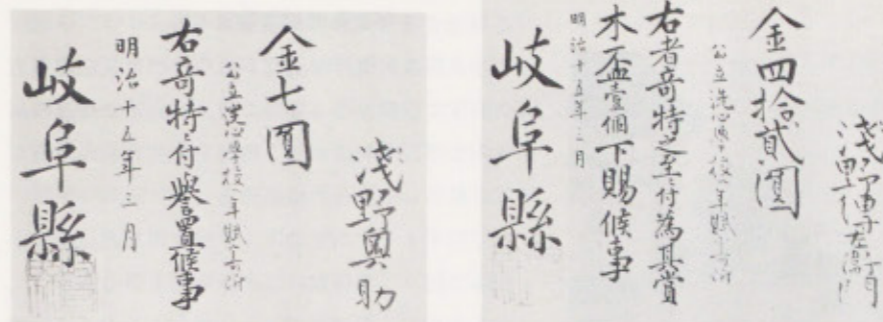 淺野傳左衛門
金四拾貳圓
公立洗心學校へ年賦寄附
右者奇特之至ニ付為其賞
木盃壹個下賜候事
明治十五年三月
岐阜縣
淺野與助
金七圓
公立洗心學校へ年賦寄附
右奇特ニ付譽置候事
明治十五年三月
岐阜縣